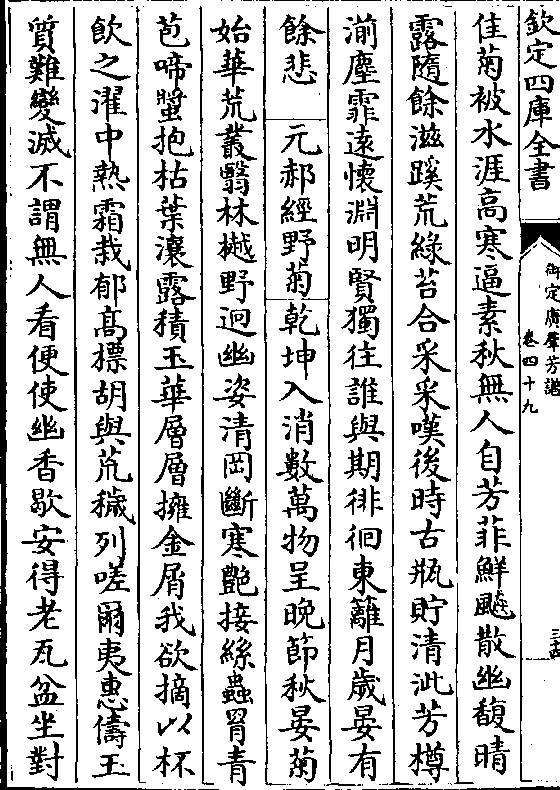 欽定四庫全書
御定廣羣芳譜
卷四十九
佳菊被水涯高寒逼素秋無人自芳菲鮮飈散幽馥晴
露隨餘滋蹊荒綠苔合采采嘆後時古瓶貯清泚芳樽
湔塵霏遠懷淵明賢獨往誰與期徘徊東籬月歲晏有
餘悲　元郝經野菊乾坤入消數萬物呈晚節秋晏菊
始華荒叢翳林樾野逈幽姿清岡斷寒艷接絲蟲罥青
苞啼螿抱枯葉瀼露積玉華層層擁金屑我欲摘以杯
飲之濯中熱霜栽郁高標胡與荒穢列嗟爾夷惠儔玉
質難變滅不謂無人看便使幽香歇安得老瓦盆坐對